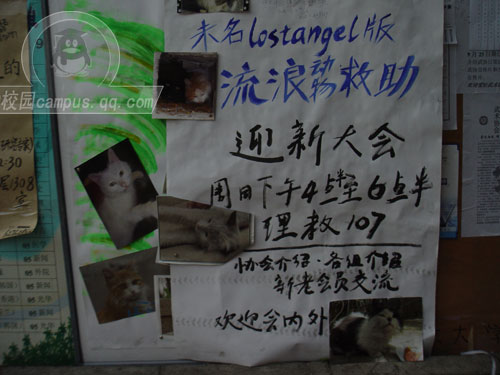 未名lostangel版
流浪动物救助
迎新大会
周日下午4点半至6点半
理教107
协会介绍·各组介绍
新老会员交流
欢迎会内外
校园campus.qq.com